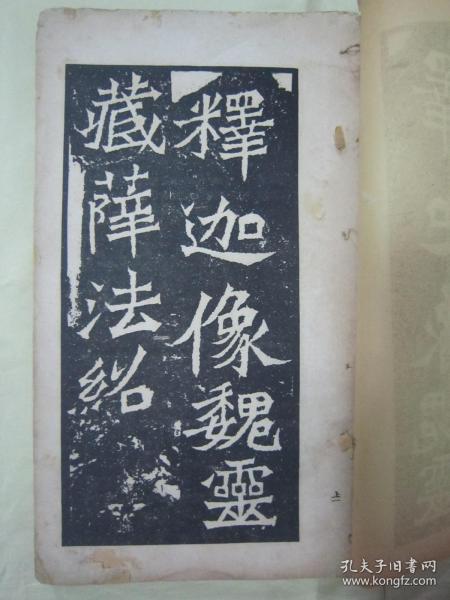 釋迦像魏靈
藏薛法紹
上一
孔夫子旧书网
www.kongfz.com